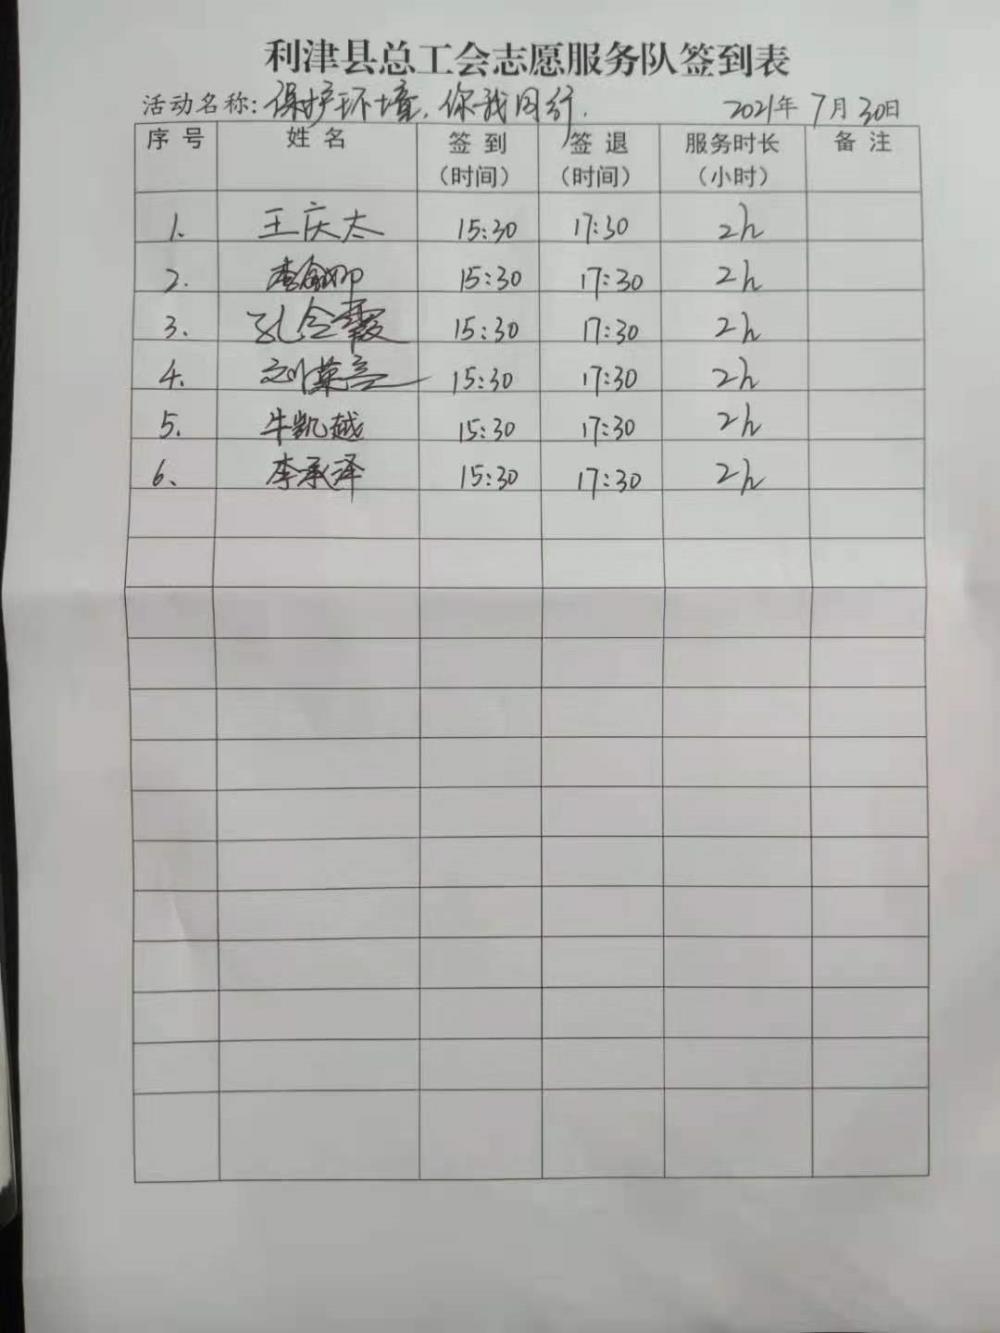 利津县总工会志愿服务队签到表
活动名称：保护环境，你我同行. 2021年7月30日
序号 姓名 签到（时间） 签退（时间） 服务时长（小时） 备注
1. 王庆太 15:30 17:30 2h
2. 15:30 17:30 2h
3. 孔令霞 15:30 17:30 2h
4. 15:30 17:30 2h
5. 牛凯越 15:30 17:30 2h
6、 李承泽 15:30 17:30 2h